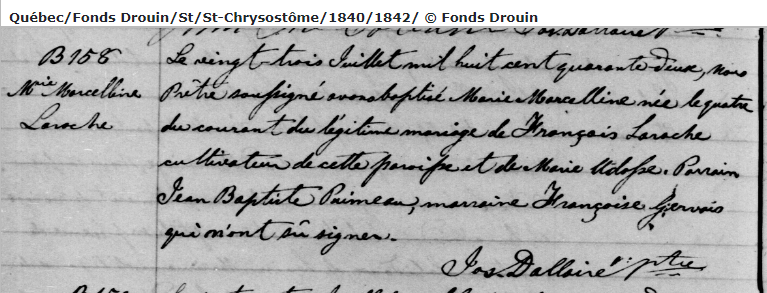 Québec/Fonds Drouin/St/St-Chrysostôme/1840/1842/ © Fonds Drouin
Jos. Dallaire Ptre
B158
Mie Marcelline
Laroche
Le vingt-trois Juillet mil huit cent quarante-deux, nous
Prêtre soussigné avons baptisé Marie Marcelline née le quatre
du courant du légitime mariage de François Laroche
cultivateur de cette paroisse et de Marie . Parrain
Jean Baptiste Primeau, marraine Françoise Gervais
qui n'ont sû signer.
Jos. Dallaire ptre